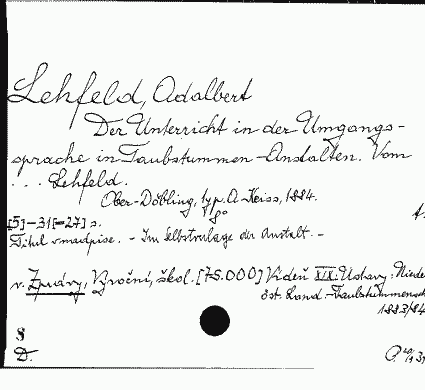 Lehfeld, Adalbert
Der Unterricht in der Umgangs-
sprache in Taubstummen-Anstalten. Vom
... Lehfeld.
Ober-Döbling, typ. A. Keiss, 1884.
8°
[5]-31[=27] s.
Titul v nadpise. - Im Selbstverlage der Anstalt. -
v. Zprávy, Výroční, škol. [75.000] Videň XIX: Ustavy: Niede
öst. Land.-Taubstummensch
1883/84
8
D.